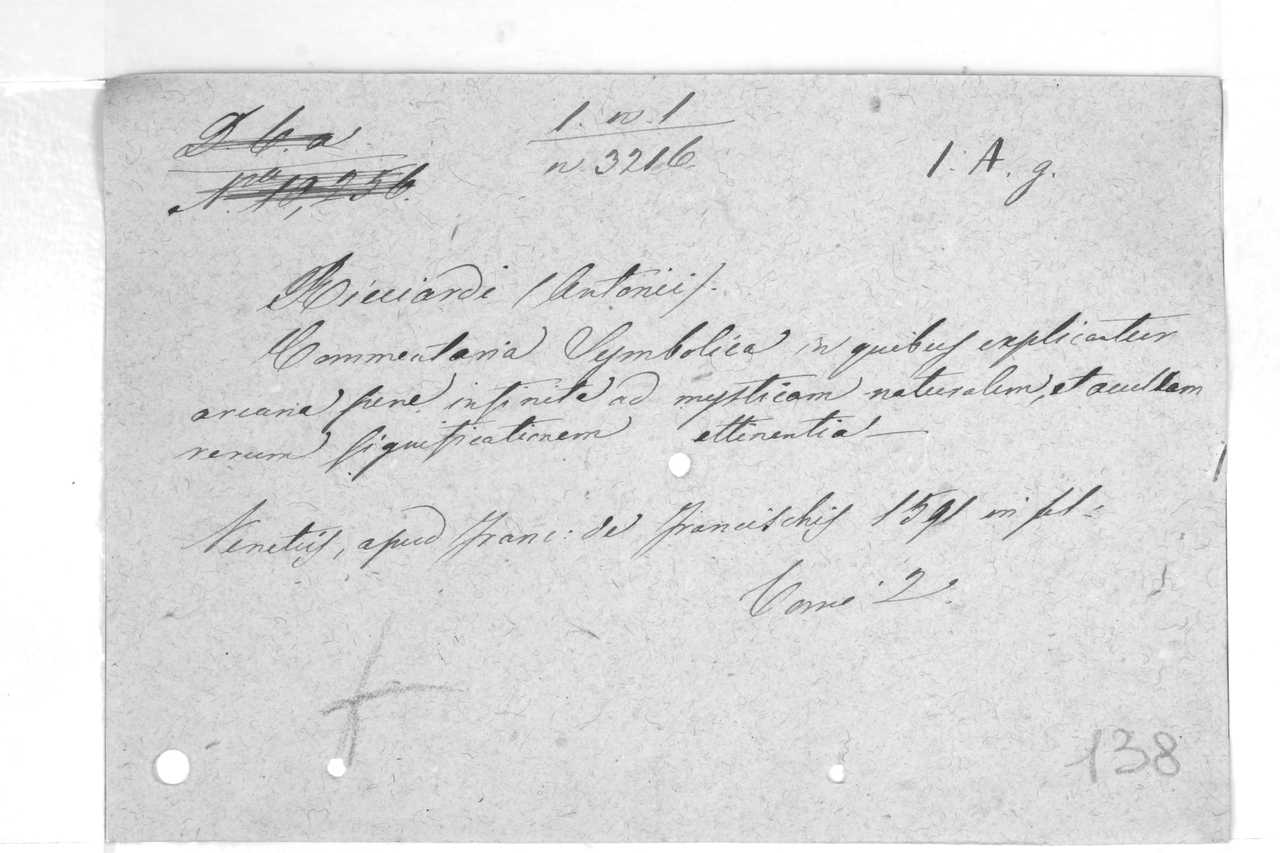 D. 6. a
N.ro 18,256.
1. n. 1
n 3216
1. A. g.
Ricciardi (Antonii).
Commentaria Symbolica in quibus explicantur
arcana pene infinita ad mysticam naturalem, et occultam
rerum significationem attinentia —
Venetiis, apud Franc: de Francischis 1591 in fol:
Tomi 2.
138